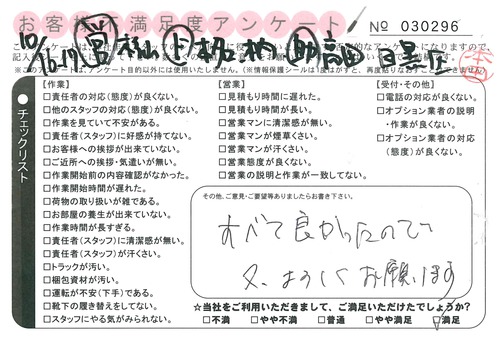 お客様不満足度アンケート
No 030296
【作業】
□責任者の対応(態度)が良くない。
□他のスタッフの対応(態度)が良くない。
□作業を見ていて不安がある。
□責任者(スタッフ)に好感が持てない。
□お客様への挨拶が出来ていない。
□ご近所への挨拶・気遣いが無い。
□作業開始前の内容確認がなかった。
□作業開始時間が遅れた。
□荷物の取り扱いが雑である。
□お部屋の養生が出来ていない。
□作業時間が長すぎる。
□責任者(スタッフ)に清潔感が無い。
□責任者(スタッフ)が汗くさい。
□トラックが汚い。
□梱包資材が汚い。
□運転が不安(下手)である。
□靴下の履き替えをしてない。
□スタッフにやる気がみられない。
チェックリスト
【営業】
□見積もり時間に遅れた。
□見積もり時間が長い。
□営業マンに清潔感が無い。
□営業マンが煙草くさい。
□営業マンが汗くさい。
□営業態度が良くない。
□営業の説明と作業が一致してない。
【受付・その他】
□電話の対応が良くない。
□オプション業者の説明
・作業が良くない。
□オプション業者の対応
(態度)が良くない。
その他、ご意見・ご要望等ありましたらお書き下さい。
すべて良かったので
又、よろしくお願いします
☆当社をご利用いただきまして、ご満足いただけたでしょうか?
□不満 □やや不満 □普通 □やや満足 □満足